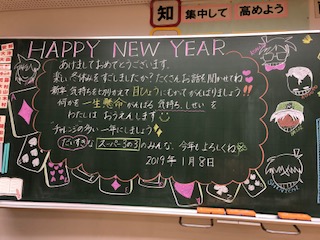 知 集中して 高めよう
HAPPY NEW YEAR
あけましておめでとうございます。
楽しい冬休みをすごしましたか？たくさんお話を聞かせてね
新年 気持ちをとりかえて 目ひょうにむかってがんばりましょう
何かを一生懸命がんばる 気持ち、しせいを
わたしは おうえんします
チャレンジの多い一年にしましょう
だいすきな スーパー3の3 のみんな、今年もよろしくね
2019年 1月8日